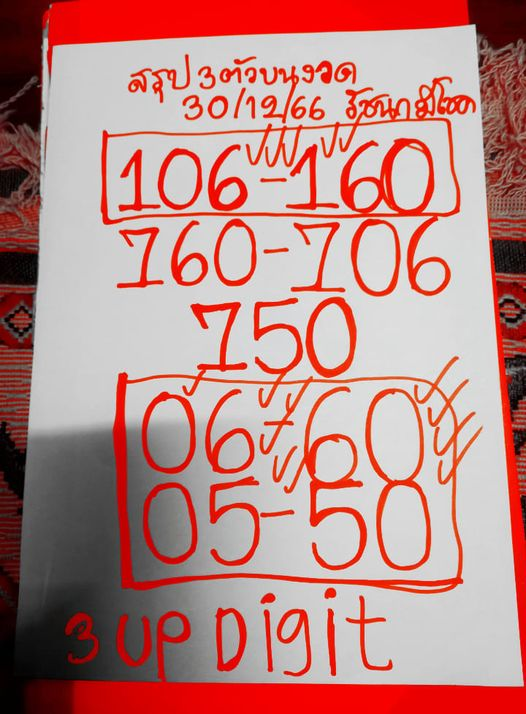 สรุป 3 ตัวบนงวด
30/12/66 รัชนก มีโชค
106-160
760-706
750
06-60
05-50
3 UP Digit